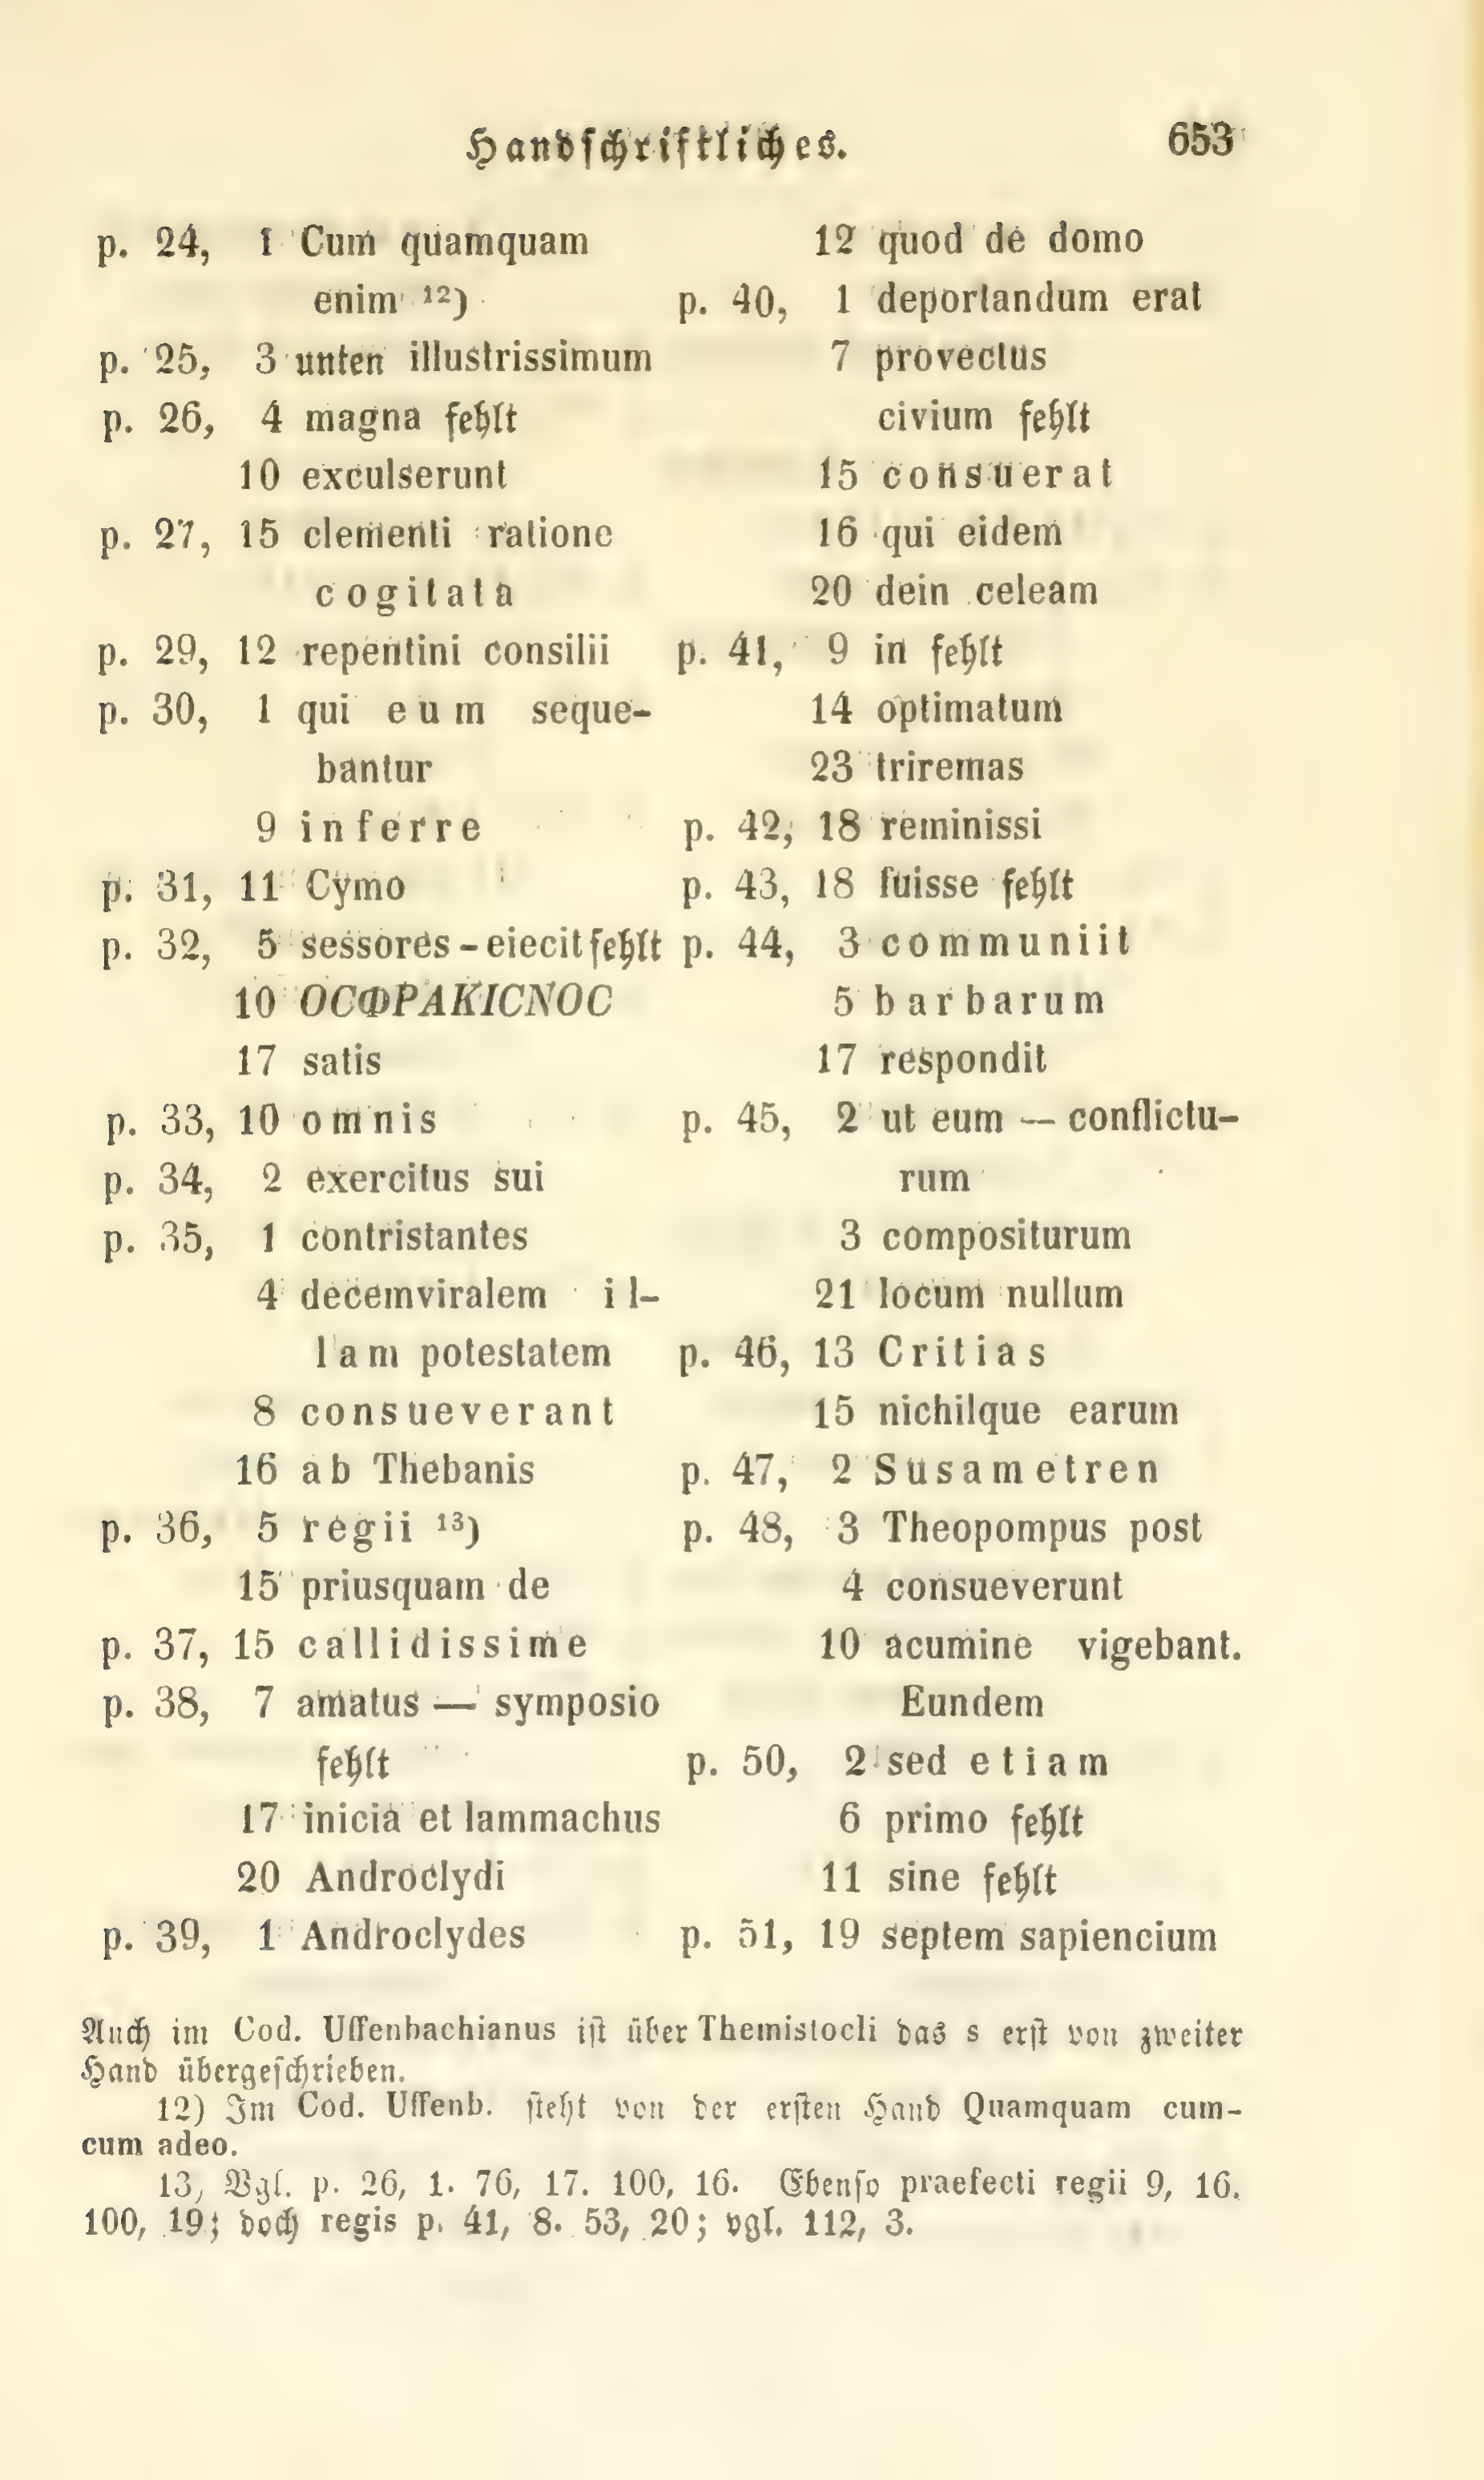 Handschriftliches. 653
p. 24, 1 Cum quamquam
enim ¹²)
p. 25, 3 unten illustrissimum
p. 26, 4 magna fehlt
10 exculserunt
p. 27, 15 clementi ratione
cogitata
p. 29, 12 repentini consilii
p. 30, 1 qui eum seque-
bantur
9 inferre
p. 31, 11 Cymo
p. 32, 5 sessores - eiecit fehlt
10 ΟCΦΡΑΚΙCΝΟC
17 satis
p. 33, 10 omnis
p. 34, 2 exercitus sui
p. 35, 1 contristantes
4 decemviralem il-
lam potestatem
8 consueverant
16 ab Thebanis
p. 36, 5 regii ¹³)
15 priusquam de
p. 37, 15 callidissime
p. 38, 7 amatus — symposio
fehlt
17 inicia et lammachus
20 Androclydi
p. 39, 1 Androclydes
12 quod de domo
p. 40, 1 deportandum erat
7 provectus
civium fehlt
15 consuerat
16 qui eidem
20 dein celeam
p. 41, 9 in fehlt
14 optimatum
23 triremas
p. 42, 18 reminissi
p. 43, 18 fuisse fehlt
p. 44, 3 communiit
5 barbarum
17 respondit
p. 45, 2 ut eum — conflictu-
rum
3 compositurum
21 locum nullum
p. 46, 13 Critias
15 nichilque earum
p. 47, 2 Susametren
p. 48, 3 Theopompus post
4 consueverunt
10 acumine vigebant.
Eundem
p. 50, 2 sed etiam
6 primo fehlt
11 sine fehlt
p. 51, 19 septem sapiencium
Auch im Cod. Uffenbachianus ist über Themistocli das s erst von zweiter
Hand übergeschrieben.
12) Im Cod. Uffenb. steht von der ersten Hand Quamquam cum-
cum adeo.
13) Vgl. p. 26, 1. 76, 17. 100, 16. Ebenso praefecti regii 9, 16.
100, 19; doch regis p. 41, 8. 53, 20; vgl. 112, 3.